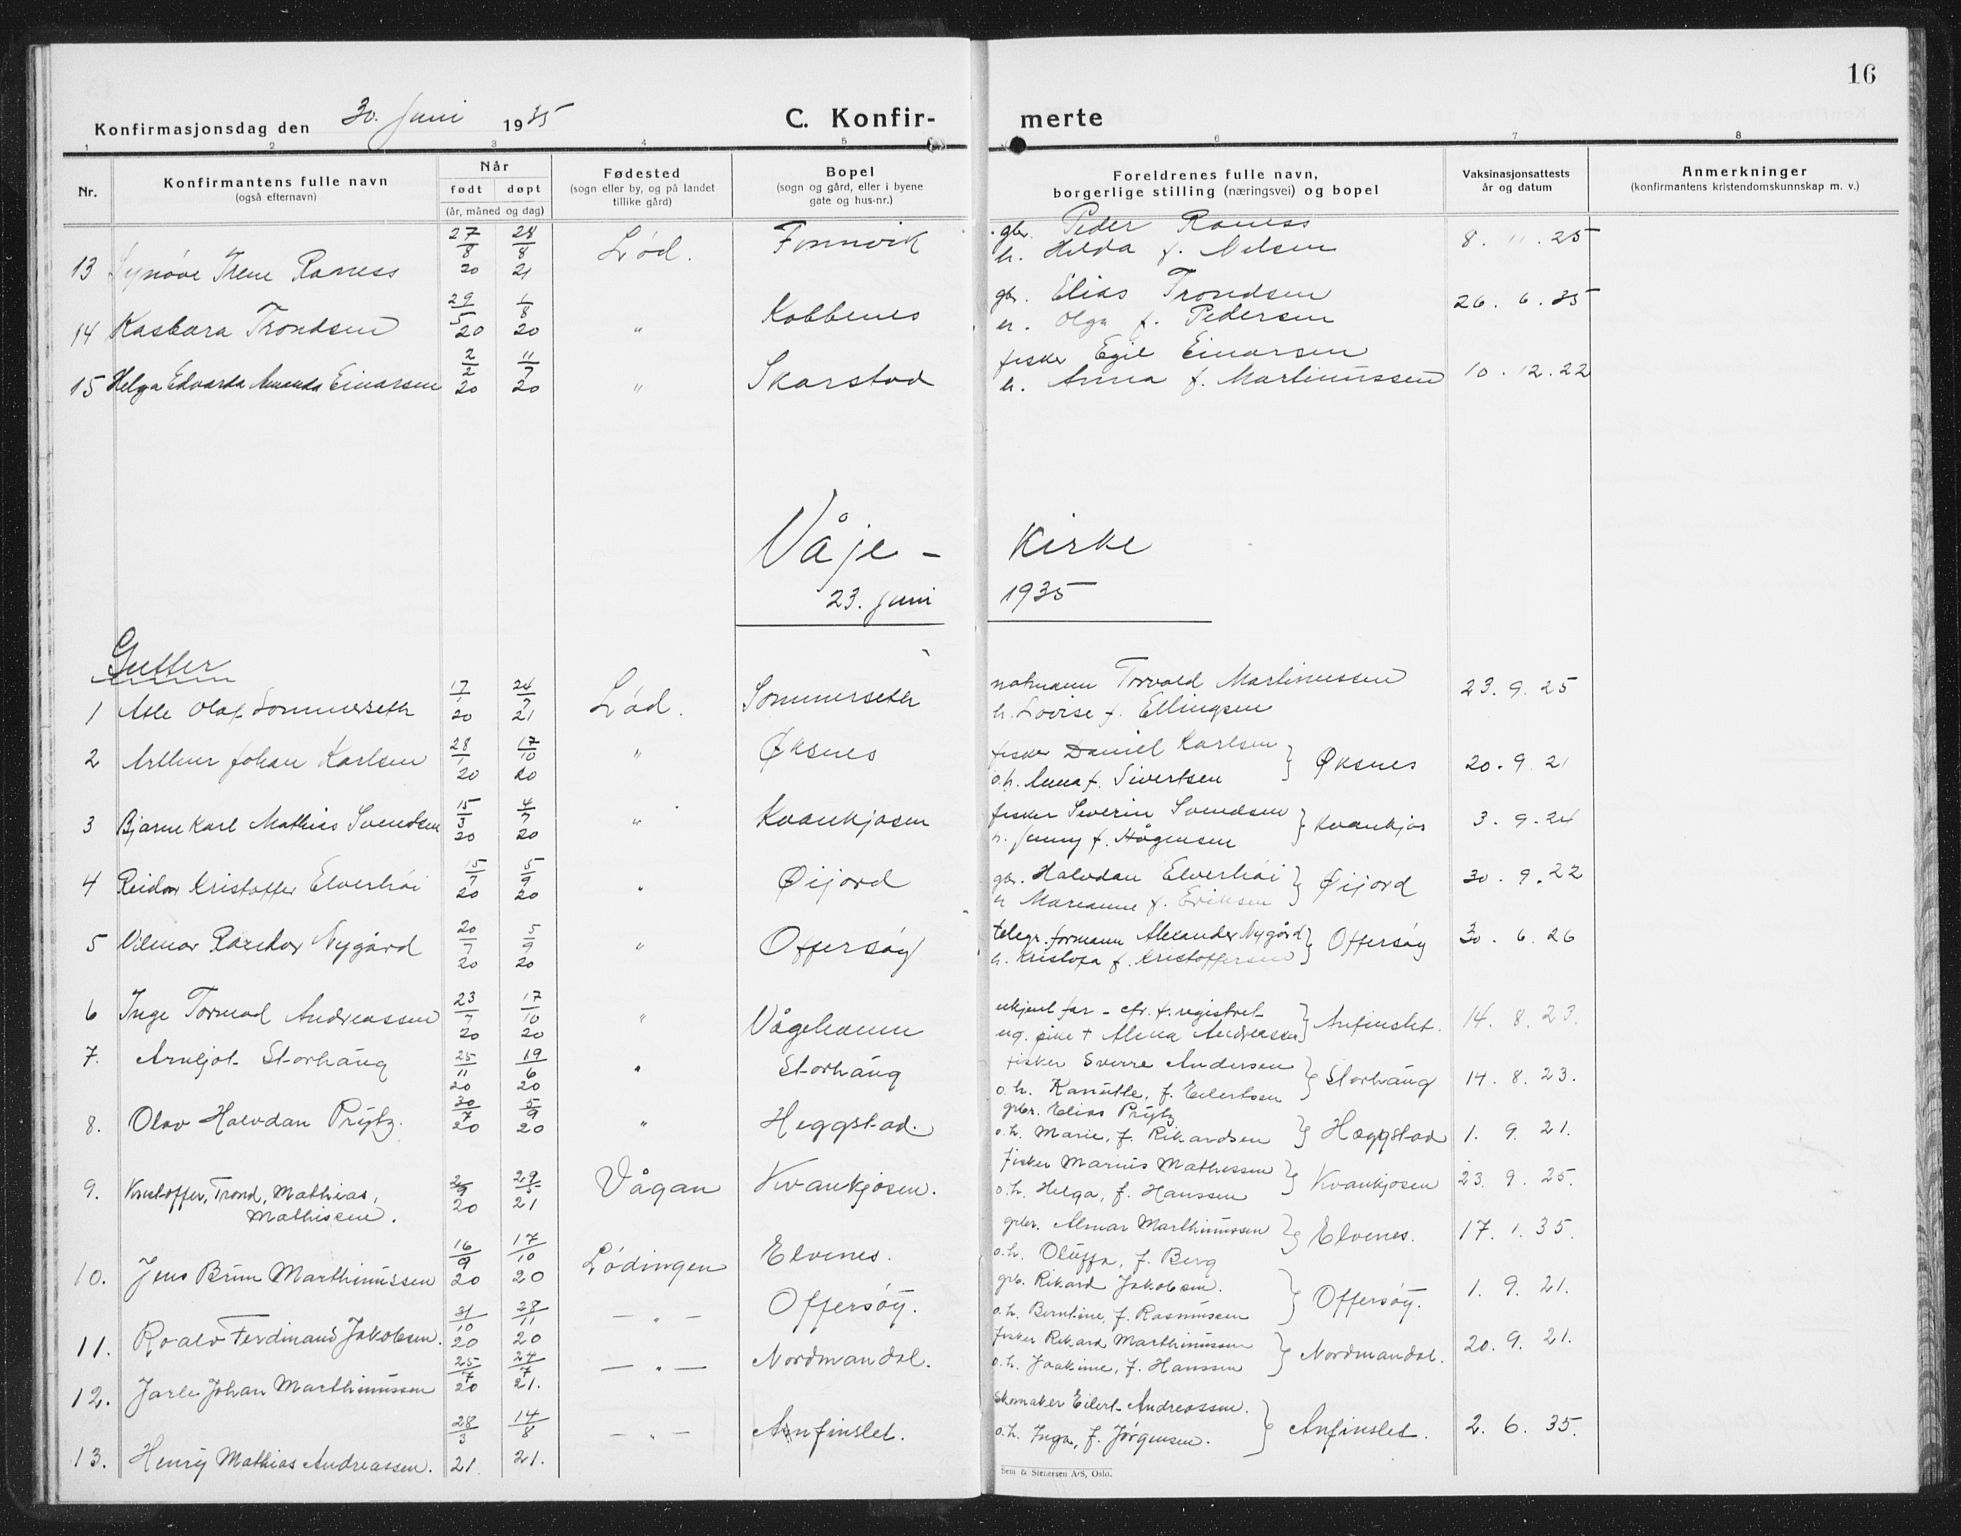 16
Konfirmasjonsdag den 30. Juni 1935 C. Konfir- merte
1 2 3 4 5 6 7 8
Nr. Konfirmantens fulle navn (også efternavn) Når født døpt (år, måned og dag) Fødested (sogn eller by, og på landet tillike gård) Bopel (sogn og gård, eller i byene gate og hus-nr.) Foreldrenes fulle navn, borgerlige stilling (næringsvei) og bopel Vaksinasjonsattests år og datum Anmerkninger (konfirmantens kristendomskunnskap m. v.)
13 Synöve Irene Raness 27/8 20 28/8 21 Lød. Fonnvik gbr. Peder Raness 8. 11. 25
h. Hilda f. Nilsen
14 Kasbara Trondsen 29/5 20 1/8 20 " Kobbenes gbr. Elias Trondsen 26. 6. 35
h. Olga f. Pedersen
15 Helga Edvarda Amanda Einarsen 2/2 20 11/7 20 " Skarstad fisker Egil Einarsen 10. 12. 22
h. Anna f. Martinussen
Våje - Kirke
23. juni 1935
Gutter
1 Atle Olaf Sommerseth 17/1 20 24/7 21 Lød. Sommerseth notmann Torvald Martinussen 23. 9. 25
h. Lovise f. Ellingsen
2 Arthur Johan Karlsen 28/1 20 17/10 20 " Øksnes fisker Daniel Karlsen } Øksnes 20. 9. 21
o.h. Anna f. Sivertsen
3 Bjarne Karl Mathias Svendsen 15/3 20 4/7 20 " Kvankjosen fisker Severin Svendsen } Kvankjos 3. 9. 24
h. Jenny f. Hågensen
4 Reidar Kristoffer Elverhöi 15/7 20 5/9 20 " Øijord gbr. Halvdan Elverhöi } Øijord 30. 9. 22
h Marianne f. Eriksen
5 Vilmar Reidar Nygård 20/7 20 5/9 20 " Offersøy telegr. formann Alexander Nygård } Offersøy 30. 6. 26
h. Kristofa f. Kristoffersen
6 Inge Tormod Andreassen 23/7 20 17/10 20 " Vågehamn ukjent far - cfr. f. registret } Anfinslet. 14. 8. 23.
ug. pike + Alma Andreassen
7. Arnljot Storhaug 25/11 20 19/6 20 " Storhaug fisker Sverre Andersen } Storhaug 14. 8. 23.
o.h. Kanutte, f. Eilertsen
8. Olav Halvdan Prytz. 30/7 20 5/9 20 " Heggstad. grbr. Elias Prytz } Hæggstad 1. 9. 21.
o.h. Marie, f. Rikardsen
9. Kristoffer, Trond, Mathias, 20 29/5 21 Vågan Kvankjosen. fisker Marius Mathissen } Kvankjosen 23. 9. 25.
Mathissen. o.h. Helga, f. Hanssen
10. Jens Brun Marthinussen 16/9 20 17/10 20 Lødingen Elvenes. grbr. Almar Marthinussen } Elvenes. 17. 1. 35.
o.h. Oluffa, f. Berg
11. Roald Ferdinand Jakobsen. 31/10 20 28/11 20 — " — Offersøy. grb. Rikard Jakobsen. } Offersøy. 1. 9. 21.
o.h. Berntine, f. Rasmussen
12. Jarle Johan Marthinussen 25/7 20 24/7 21. — " — Nordmandal. fisker Rikard Marthinussen } Nordmandal. 20. 9. 21.
o.h. Joakime, f. Hanssen
13. Henry Mathias Andreassen. 28/3 21 14/8 21. — " — Anfinslet. skomaker Eilert Andreassen. } Anfinslet. 2. 6. 35.
o.h. Inga, f. Jørgensen.
Sem & Stenersen A/S, Oslo.